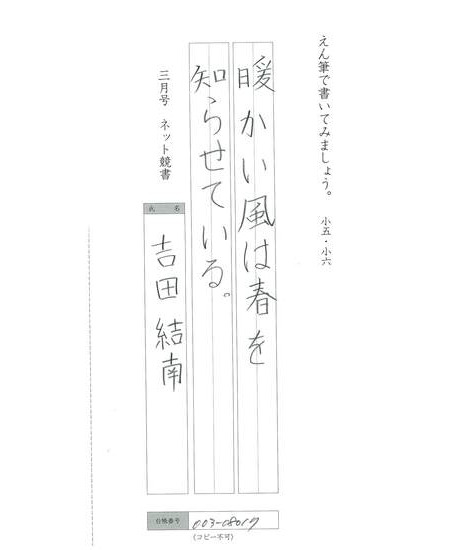 えん筆で書いてみましょう。 小五・小六
暖かい風は春を
知らせている。
三月号 ネット競書
氏 名
吉田 結南
台帳番号 003-08017
(コピー不可)